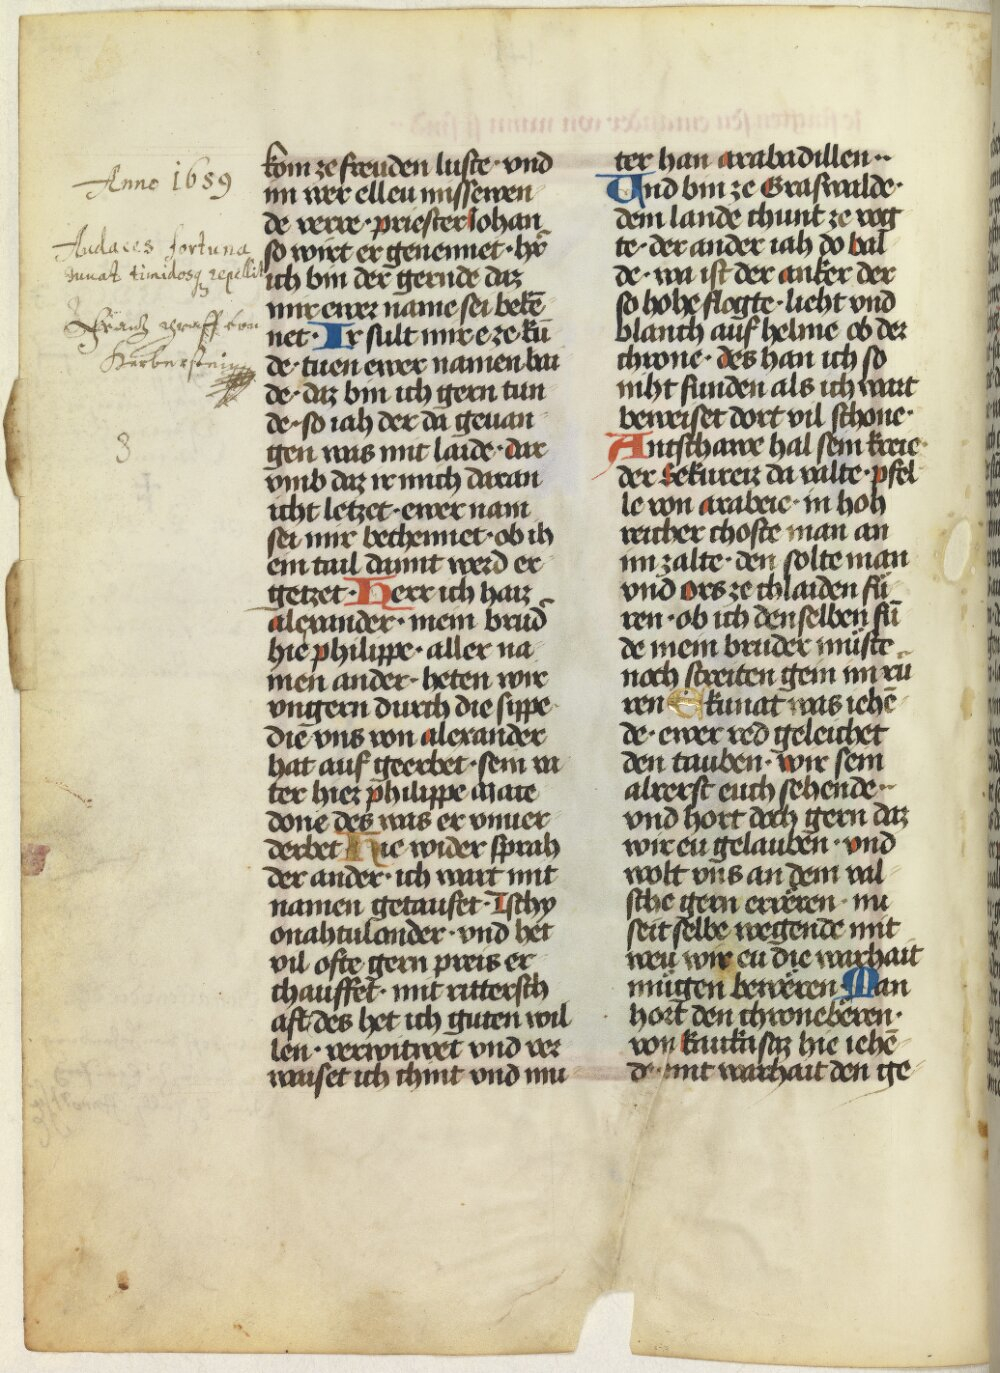 Anno 1659
Audaces fortuna
iuuat timidosq repellit
Frantz graff von
Herberstein
3
kom ze freuden luste · vnd
im wer elleu missewen
de verre · priester Johan
so wirt er genennet · hˢr
ich bin der gernde daz
mir ewer name sei bekē
net · Ir sult mir e ze kū
de · tuen ewer namen bai
de · daz bin ich gern tun
de · so iah der da geuan
gen was mit laide · dar
vmb daz ir mich daran
icht letzet · ewer nam
sei mir bechennet · ob ih
ein tail damit werd er
getzet · Herr ich haiz
alexander · mein brud̄
hie philippe · aller na
men ander · heten wir
vngern durch die sippe
die vns von alexander
hat auf geerbet · sein va
ter hiez philippe Mate
done des was er vnuer
derbet Hie wider sprah
der ander · ich wart mit
namen getaufet · Tschy
onahtulander · vnd het
vil ofte gern preis er
chauffet · mit rittersch
aft des het ich guten wil
len · verwitwet vnd ver
waiset ich chint vnd mu
ter han arabadillen ··
Vnd bin ze Graswalde ·
dem lande chunt ze vog
te · der ander iah do bal
de · wa ist der anker der
so hohe flogte · licht vnd
blanch auf helme ob der
chrone · des han ich so
niht funden als ich wart
beweiset dort vil schone ·
Antschawe hal sein kreie ·
der Sekureiz da valte · pfel
le von arabeie · in hoh
reicher choste man an
im zalte · den solte man
vnd ors ze chlaiden fü
ren · ob ich den selben fū
de mein bruder müste
noch streiten gein im rü
ren Ekunat was iehē
de · ewer red geleichet
den tauben · wir sein
alrerst euch sehende ··
vnd hort doch gern daz
wir eu gelauben · vnd
wolt vns an dem val
sche gern erveren · nu
seit selbe wegende mit
weu wir eu die warhait
mügen beweren Man
hort den chroneberen ·
von kaukasaz hie iehē
de · mit warhait den ge